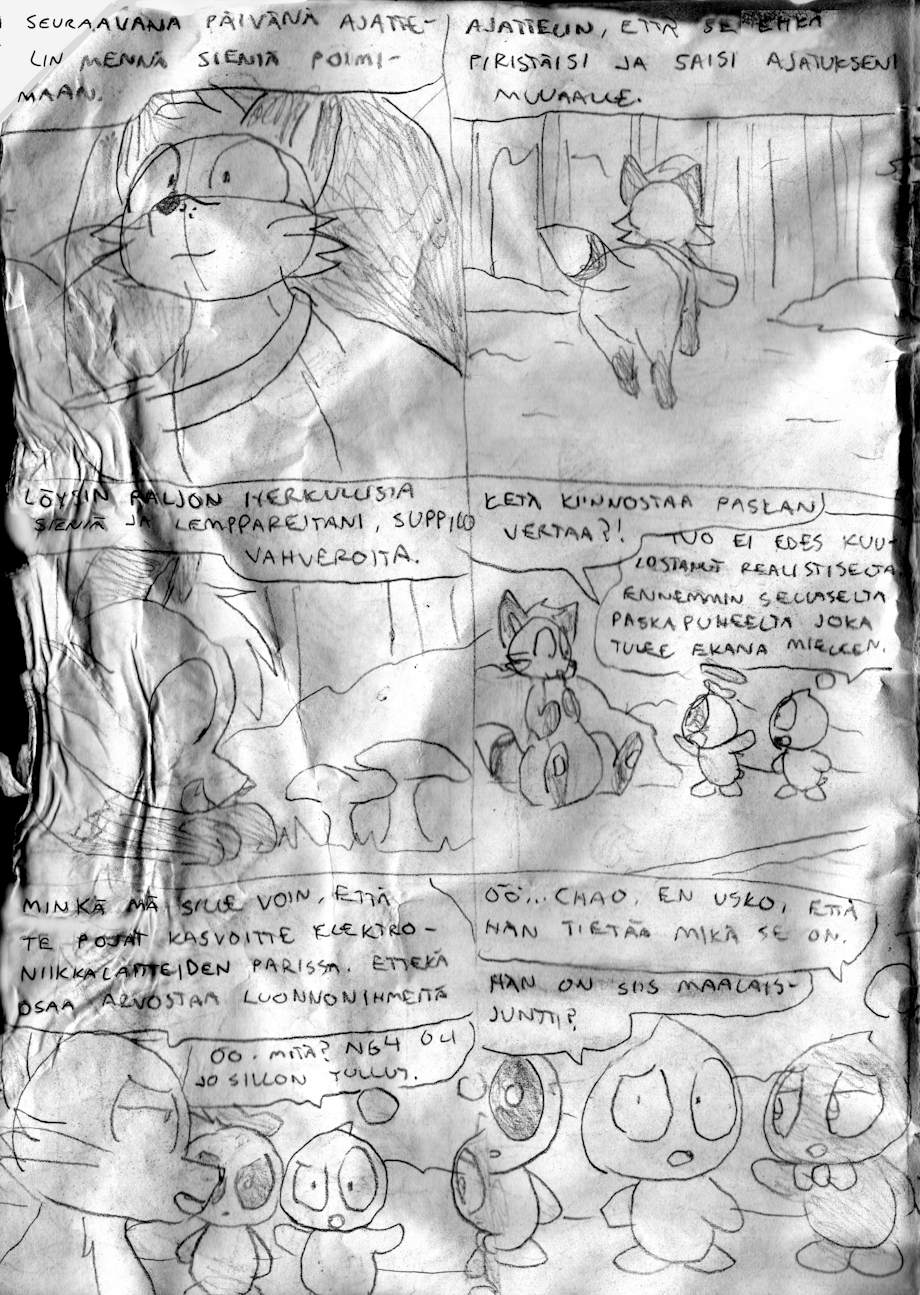 SEURAAVANA PÄIVÄNÄ AJATTE-
LIN MENNÄ SIENIÄ POIMI-
MAAN.
AJATTELIN, ETTÄ SE EHKÄ
PIRISTÄISI JA SAISI AJATUKSENI
MUUAALLE.
LÖYSIN PALJON HERKULLISIA
SIENIÄ JA LEMPPAREITANI, SUPPILO
VAHVEROITA.
KETÄ KIINNOSTAA PASKAN
VERTAA?!
TUO EI EDES KUU-
LOSTANUT REALISTISELTA.
ENNEMMIN SELLASELTA
PASKAPUHEELTA JOKA
TULEE EKANA MIELEEN.
MINKÄ MÄ SILLE VOIN, ETTÄ
TE POJAT KASVOITTE ELEKTRO-
NIIKKALAITTEIDEN PARISSA. ETTEKÄ
OSAA ARVOSTAA LUONNONIHMEITÄ
ÖÖ. MITÄ? N64 OLI
JO SILLON TULLUT.
ÖÖ... CHAO, EN USKO, ETTÄ
HÄN TIETÄÄ MIKÄ SE ON.
HÄN ON SIIS MAALAIS-
JUNTTI?